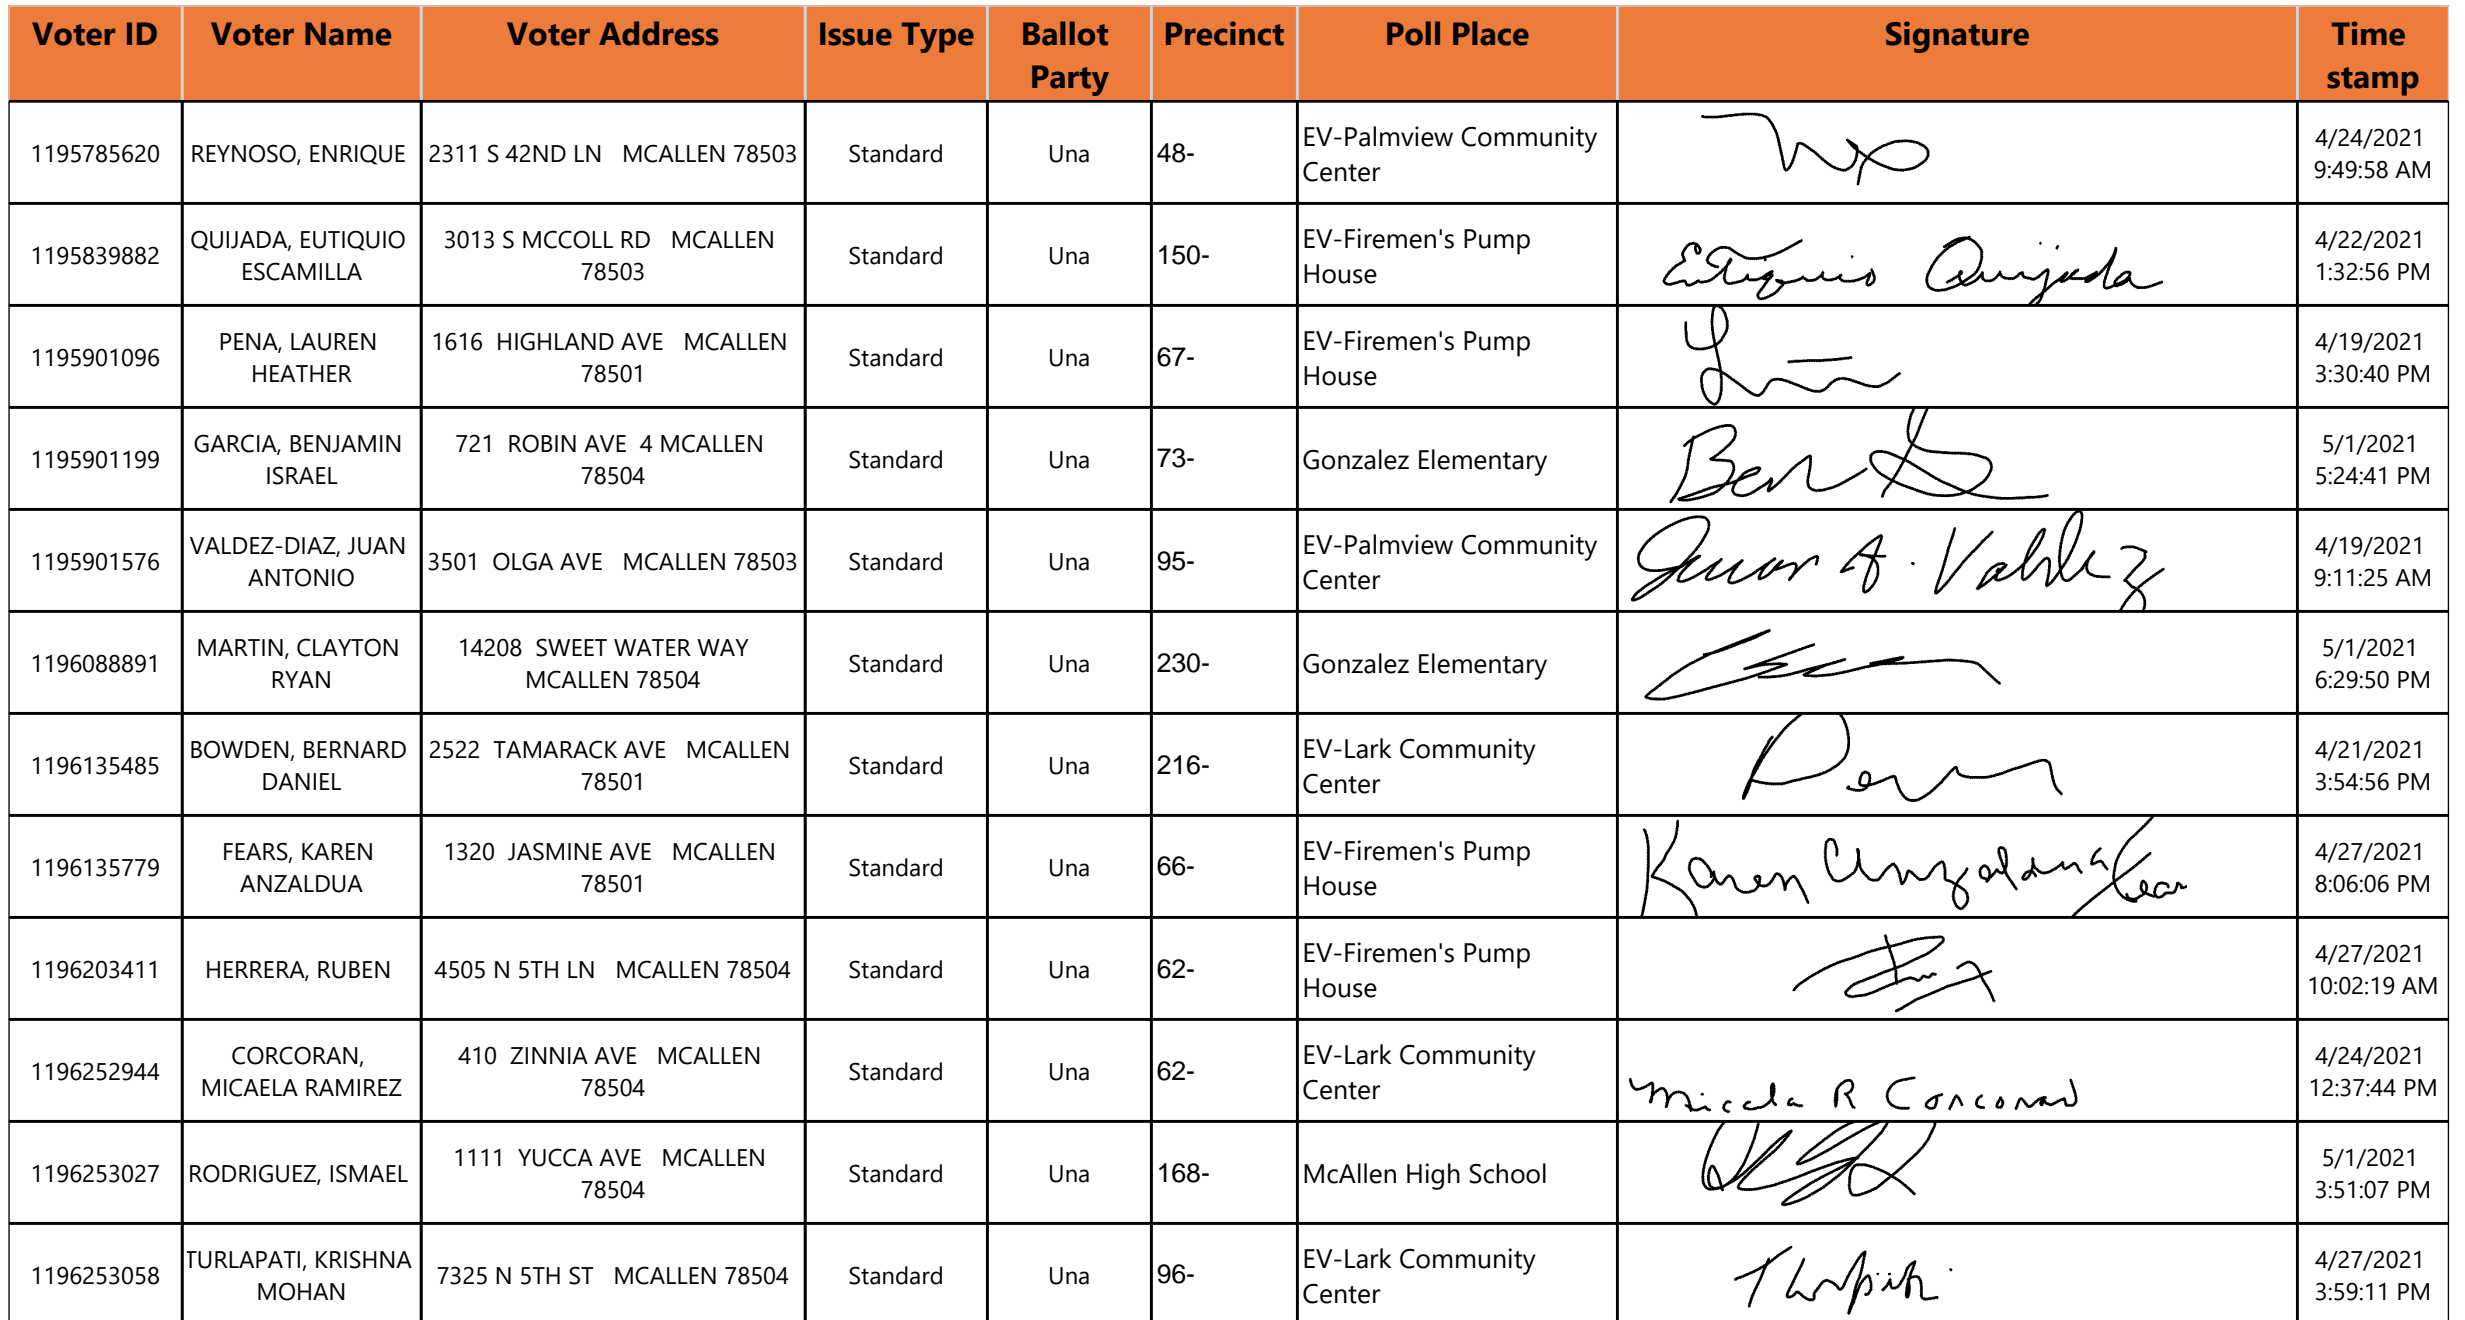 Voter ID Voter Name Voter Address Issue Type Ballot Party Precinct Poll Place Signature Time stamp
1195785620 REYNOSO, ENRIQUE 2311 S 42ND LN MCALLEN 78503 Standard Una 48- EV-Palmview Community Center 4/24/2021 9:49:58 AM
1195839882 QUIJADA, EUTIQUIO ESCAMILLA 3013 S MCCOLL RD MCALLEN 78503 Standard Una 150- EV-Firemen's Pump House Eutiquio Quijada 4/22/2021 1:32:56 PM
1195901096 PENA, LAUREN HEATHER 1616 HIGHLAND AVE MCALLEN 78501 Standard Una 67- EV-Firemen's Pump House 4/19/2021 3:30:40 PM
1195901199 GARCIA, BENJAMIN ISRAEL 721 ROBIN AVE 4 MCALLEN 78504 Standard Una 73- Gonzalez Elementary Ben 5/1/2021 5:24:41 PM
1195901576 VALDEZ-DIAZ, JUAN ANTONIO 3501 OLGA AVE MCALLEN 78503 Standard Una 95- EV-Palmview Community Center Juan A. Valdez 4/19/2021 9:11:25 AM
1196088891 MARTIN, CLAYTON RYAN 14208 SWEET WATER WAY MCALLEN 78504 Standard Una 230- Gonzalez Elementary 5/1/2021 6:29:50 PM
1196135485 BOWDEN, BERNARD DANIEL 2522 TAMARACK AVE MCALLEN 78501 Standard Una 216- EV-Lark Community Center 4/21/2021 3:54:56 PM
1196135779 FEARS, KAREN ANZALDUA 1320 JASMINE AVE MCALLEN 78501 Standard Una 66- EV-Firemen's Pump House Karen Anzaldua Fears 4/27/2021 8:06:06 PM
1196203411 HERRERA, RUBEN 4505 N 5TH LN MCALLEN 78504 Standard Una 62- EV-Firemen's Pump House 4/27/2021 10:02:19 AM
1196252944 CORCORAN, MICAELA RAMIREZ 410 ZINNIA AVE MCALLEN 78504 Standard Una 62- EV-Lark Community Center Micaela R Corcoran 4/24/2021 12:37:44 PM
1196253027 RODRIGUEZ, ISMAEL 1111 YUCCA AVE MCALLEN 78504 Standard Una 168- McAllen High School 5/1/2021 3:51:07 PM
1196253058 TURLAPATI, KRISHNA MOHAN 7325 N 5TH ST MCALLEN 78504 Standard Una 96- EV-Lark Community Center 4/27/2021 3:59:11 PM